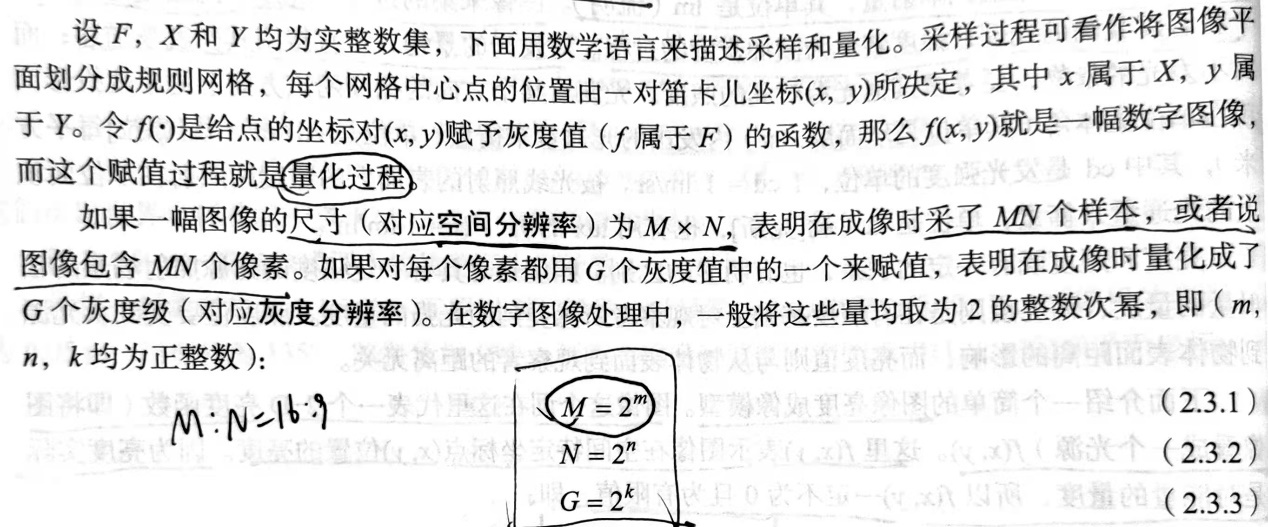 设 F，X 和 Y 均为实整数集，下面用数学语言来描述采样和量化。采样过程可看作将图像平
面划分成规则网格，每个网格中心点的位置由一对笛卡儿坐标(x, y)所决定，其中 x 属于 X，y 属
于 Y。令 f(·)是给点的坐标对(x, y)赋予灰度值（f 属于 F）的函数，那么 f(x, y)就是一幅数字图像，
而这个赋值过程就是量化过程。
如果一幅图像的尺寸（对应空间分辨率）为 M × N，表明在成像时采了 MN 个样本，或者说
图像包含 MN 个像素。如果对每个像素都用 G 个灰度值中的一个来赋值，表明在成像时量化成了
G 个灰度级（对应灰度分辨率）。在数字图像处理中，一般将这些量均取为 2 的整数次幂，即（m,
n，k 均为正整数）：
M = 2^m （2.3.1）
M·N=16:9
N = 2^n （2.3.2）
G = 2^k （2.3.3）